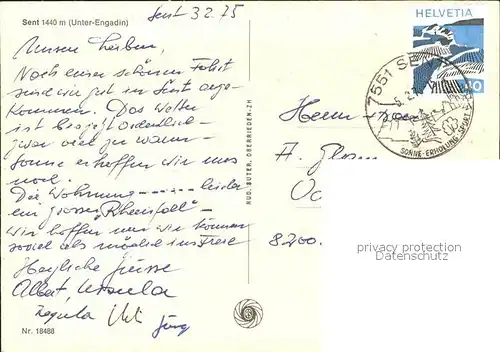 Sent 1440 m (Unter-Engadin)
Sent 3.2.75
Unsere Lieben,
Noch einer schönen Fahrt
sind wir gut in Sent ange-
kommen. Das Wetter
ist bis jetzt ordentlich -
zwar viel zu warm
Sonne erhoffen wir uns
noch.
Die Wohnung ------ leider
ein grosser "Rheinfall" -
wir hoffen nun wir können
soviel als möglich ins Freie
Herzliche Grüsse
Albert, Ursula
Regula Ueli Jürg
Nr. 18488
RUD. SUTER, OBERRIEDEN-ZH
HELVETIA
7551 SENT
SONNE·ERHOLUNG·SPORT
Herrn
A.
8200
privacy protection
Datenschutz